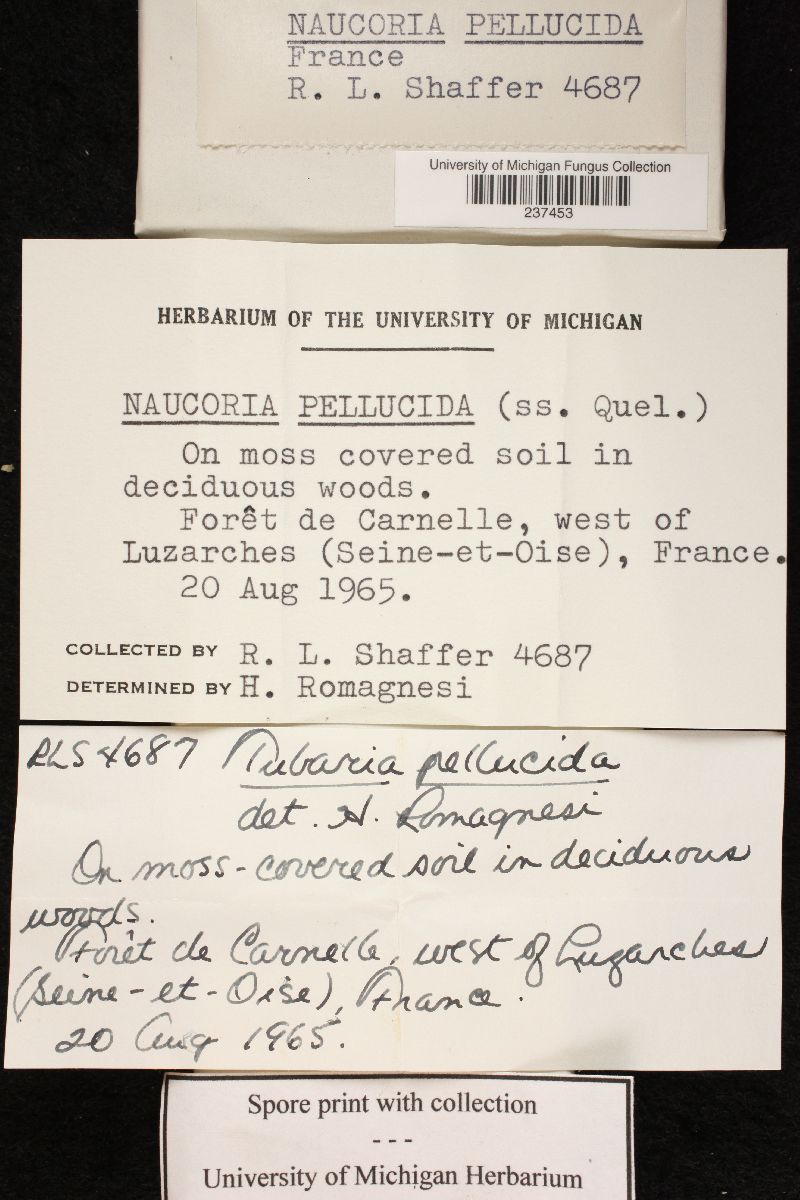 NAUCORIA PELLUCIDA
France
R. L. Shaffer 4687
University of Michigan Fungus Collection
237453
HERBARIUM OF THE UNIVERSITY OF MICHIGAN
NAUCORIA PELLUCIDA (ss. Quel.)
On moss covered soil in
deciduous woods.
Forêt de Carnelle, west of
Luzarches (Seine-et-Oise), France.
20 Aug 1965.
COLLECTED BY R. L. Shaffer 4687
DETERMINED BY H. Romagnesi
RLS 4687 Tubaria pellucida
det. H. Romagnesi
On moss-covered soil in deciduous
woods.
Forêt de Carnelle, west of Luzarches
(Seine-et-Oise), France.
20 Aug 1965.
Spore print with collection
---
University of Michigan Herbarium